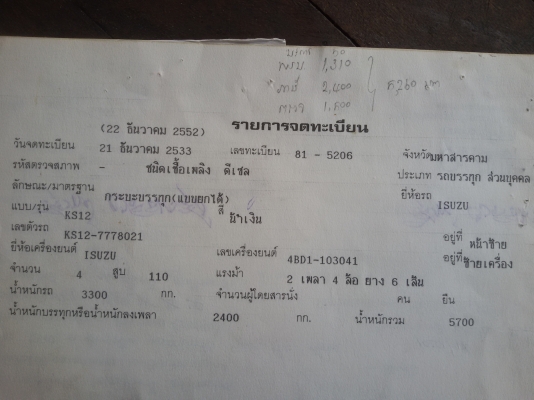 พรบ 1,310
ภาษี 2,400
(22 ธันวาคม 2552) รายการจดทะเบียน
วันจดทะเบียน 21 ธันวาคม 2533 เลขทะเบียน 81 - 5206 จังหวัดมหาสารคาม
รหัสตรวจสภาพ - ชนิดเชื้อเพลิง ดีเซล ประเภท รถบรรทุก ส่วนบุคคล
ลักษณะ/มาตรฐาน กระบะบรรทุก(แบบยกได้) ยี่ห้อรถ
แบบ/รุ่น KS12 สี น้ำเงิน ISUZU
เลขตัวรถ KS12-7778021 อยู่ที่ หน้าซ้าย
ยี่ห้อเครื่องยนต์ ISUZU เลขเครื่องยนต์ 4BD1-103041 อยู่ที่ ซ้ายเครื่อง
จำนวน 4 สูบ 110 แรงม้า 2 เพลา 4 ล้อ ยาง 6 เส้น
น้ำหนักรถ 3300 กก. จำนวนผู้โดยสารนั่ง คน ยืน
น้ำหนักบรรทุกหรือน้ำหนักลงเพลา 2400 กก. น้ำหนักรวม 5700